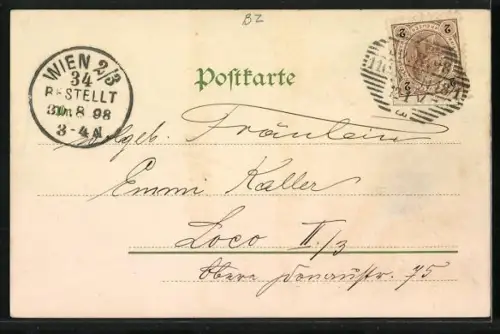 BZ
Postkarte
2 2
WIEN 2/3
34
BESTELLT
30.8.98
3-4 N
Wolgeb. Fräulein
Emmi Kaller
Loco II/3
Obere Donaustr. 75